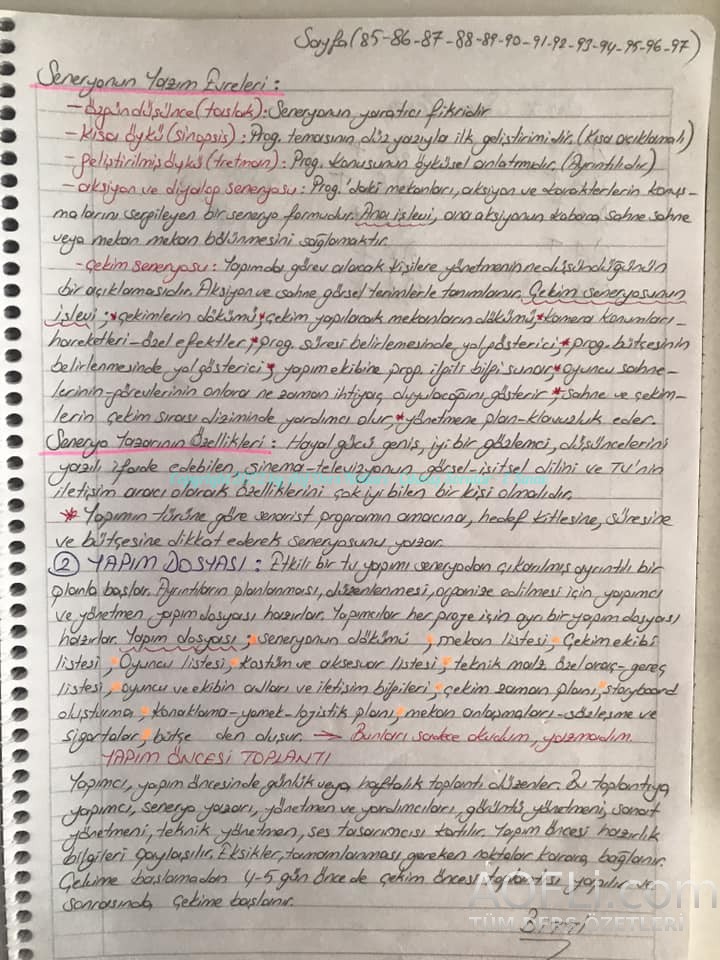 Sayfa(85-86-87-88-89-90-91-92-93-94-95-96-97)
Seneryonun Yazım Evreleri:
-özgündüşünce(taslak): Seneryonun yaratıcı fikridir
-kısa öykü (sinopsis): Prog. temasının düz yazıyla ilk geliştirimidir. (Kısa açıklamalı)
-geliştirilmiş öykü (tretman): Prog. konusunun öyküsel anlatımıdır. (Ayrıntılıdır.)
-aksiyon ve diyalog seneryosu: Prog.'daki mekanları, aksiyon ve karakterlerin konuş-
malarını sergileyen bir senaryo formudur. Ana işlevi, ana aksiyonun kabaca sahne sahne
veya mekan mekan bölünmesini sağlamaktır.
-çekim seneryosu: Yapımda görev alacak kişilere yönetmenin ne düşündüğünün
bir açıklamasıdır. Aksiyon ve sahne görsel terimlerle tanımlanır. Çekim seneryosunun
işlevi; *çekimlerin dökümü, *çekim yapılacak mekanların dökümü *kamera konumları-
hareketleri-özel efektler, *prog. süresi belirlemesinde yol gösterici, *prog. bütçesinin
belirlenmesinde yol gösterici, *yapım ekibine prog. ilgili bilgi sunar, *oyuncu sahne-
lerinin-görevlerinin onlara ne zaman ihtiyaç duyulacağını gösterir, *sahne ve çekim-
lerin çekim sırası diziminde yardımcı olur, *yönetmene plan-klavuzluk eder.
Seneryo Yazarının Özellikleri: Hayal gücü geniş, iyi bir gözlemci, düşüncelerini
yazılı ifade edebilen, sinema-televizyonun görsel-işitsel dilini ve TV'nin
iletişim aracı olarak özelliklerini çok iyi bilen bir kişi olmalıdır.
* Yapımın türüne göre senarist programın amacına, hedef kitlesine, süresine
ve bütçesine dikkat ederek seneryosunu yazar.
2 YAPIM DOSYASI: Etkili bir tv yapımı seneryodan çıkarılmış ayrıntılı bir
planla başlar. Ayrıntıların planlanması, düzenlenmesi, organize edilmesi için yapımcı
ve yönetmen yapım dosyası hazırlar. Yapımcılar her proje için ayrı bir yapım dosyası
hazırlar. Yapım dosyası; seneryonun dökümü, mekan listesi, Çekim ekibi
listesi, Oyuncu listesi, kostüm ve aksesuar listesi, teknik malz özel araç-gereç
listesi, oyuncu ve ekibin adları ve iletişim bilgileri, çekim zaman planı, storyboard
oluşturma, konaklama-yemek-lojistik planı, mekan anlaşmaları-sözleşme ve
sigortalar, bütçe den oluşur. → Bunları sadece okudum, yazmadım.
YAPIM ÖNCESİ TOPLANTI
Yapımcı, yapım öncesinde günlük veya haftalık toplantı düzenler. Bu toplantıya
yapımcı, seneryo yazarı, yönetmen ve yardımcıları, görüntü yönetmeni, sanat
yönetmeni, teknik yönetmen, ses tasarımcısı katılır. Yapım öncesi hazırlık
bilgileri paylaşılır. Eksikler, tamamlanması gereken noktalar karara bağlanır.
Çekime başlamadan 4-5 gün önce de çekim öncesi toplantısı yapılır ve
sonrasında çekime başlanır.
BİTTİ
AOFLi.com
TÜM DERS ÖZETLERİ